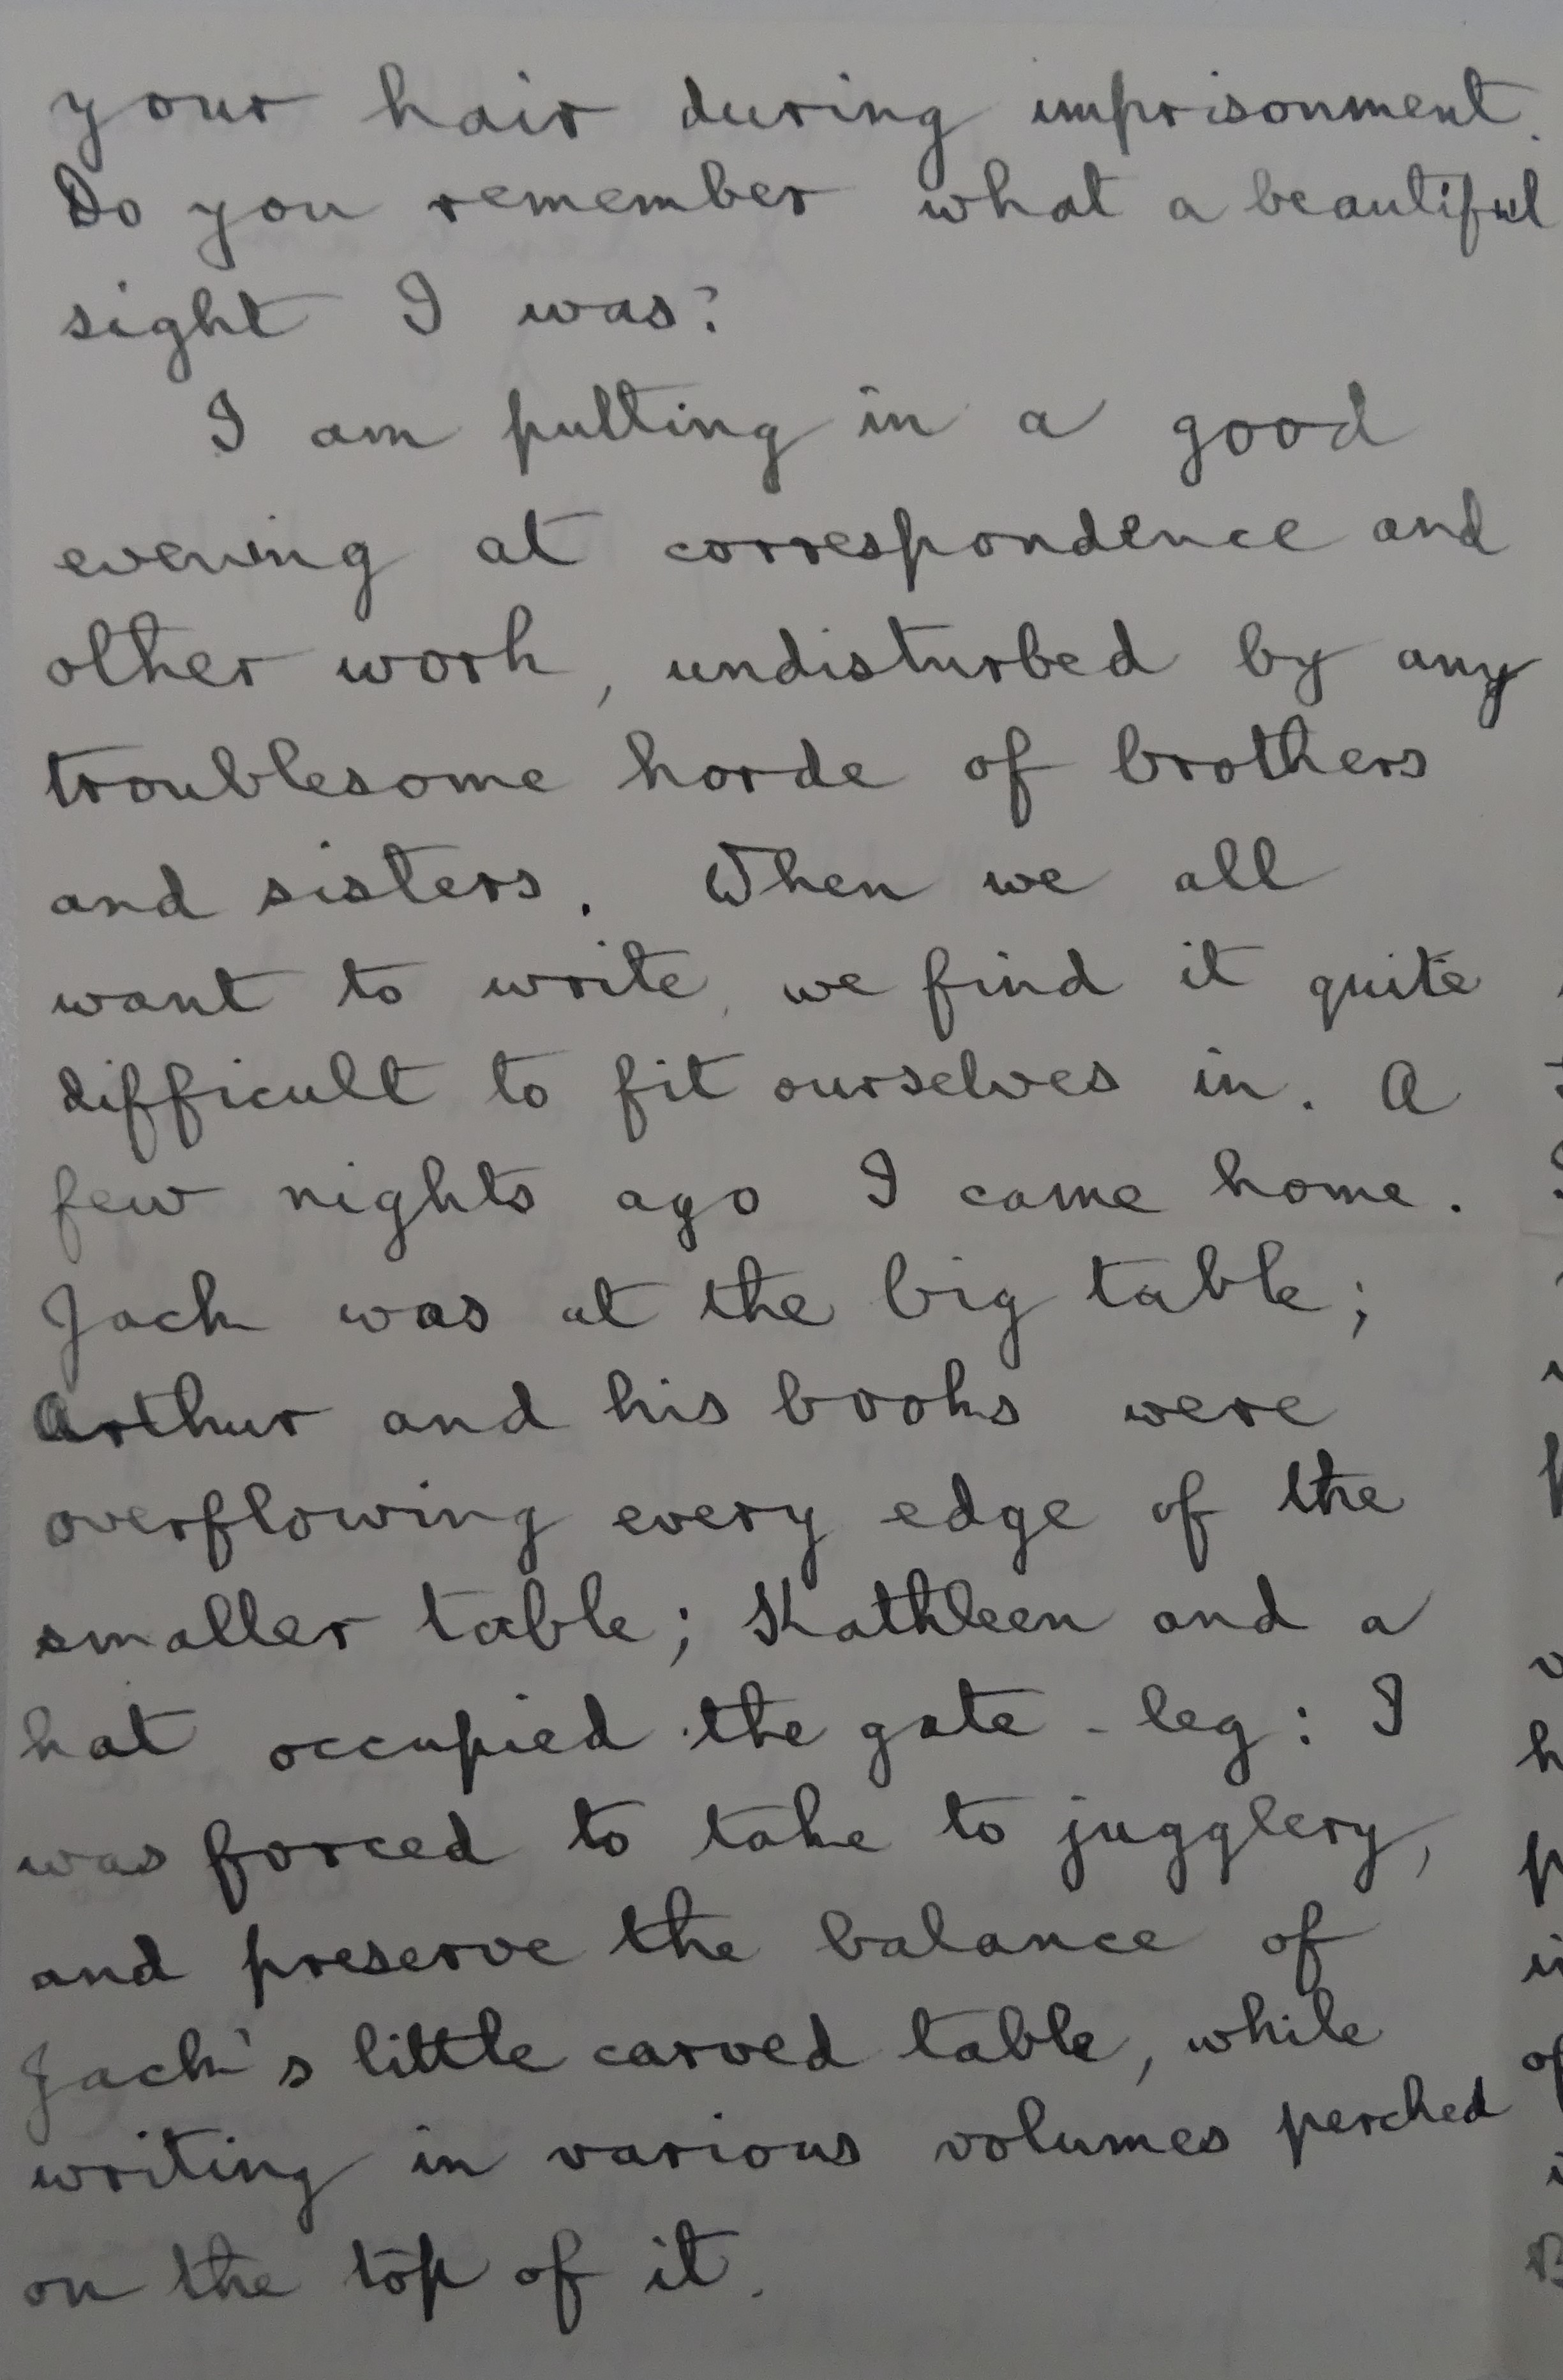 your hair during imprisonment.
Do you remember what a beautiful
sight I was?
I am putting in a good
evening at correspondence and
other work, undisturbed by any
troublesome horde of brothers
and sisters. When we all
want to write, we find it quite
difficult to fit ourselves in. A
few nights ago I came home.
Jack was at the big table;
Arthur and his books were
overflowing every edge of the
smaller table; Kathleen and a
hat occupied the gate-leg: I
was forced to take to jugglery,
and preserve the balance of
Jack's little carved table, while
writing in various volumes perched
on the top of it.